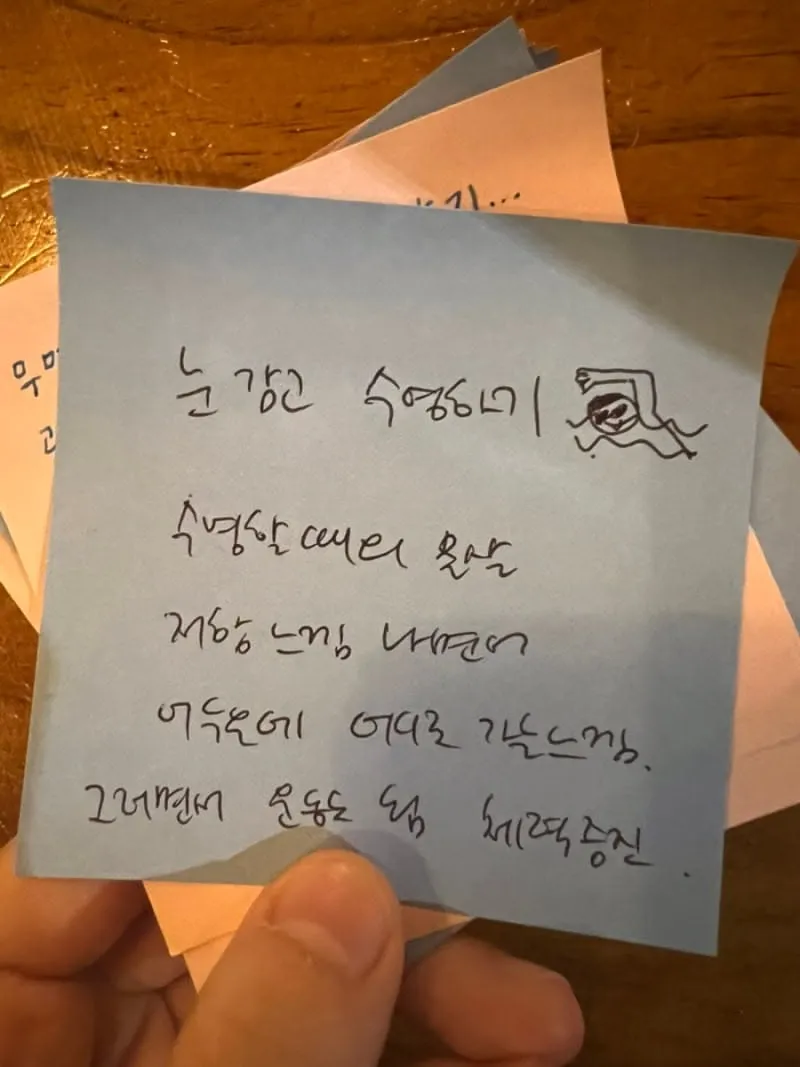 눈 감고 수영하기
수영할 때의 물살
저항 느낌 나면서
어두운데 어디로 가는느낌.
그러면서 운동도 됨 체력증진.